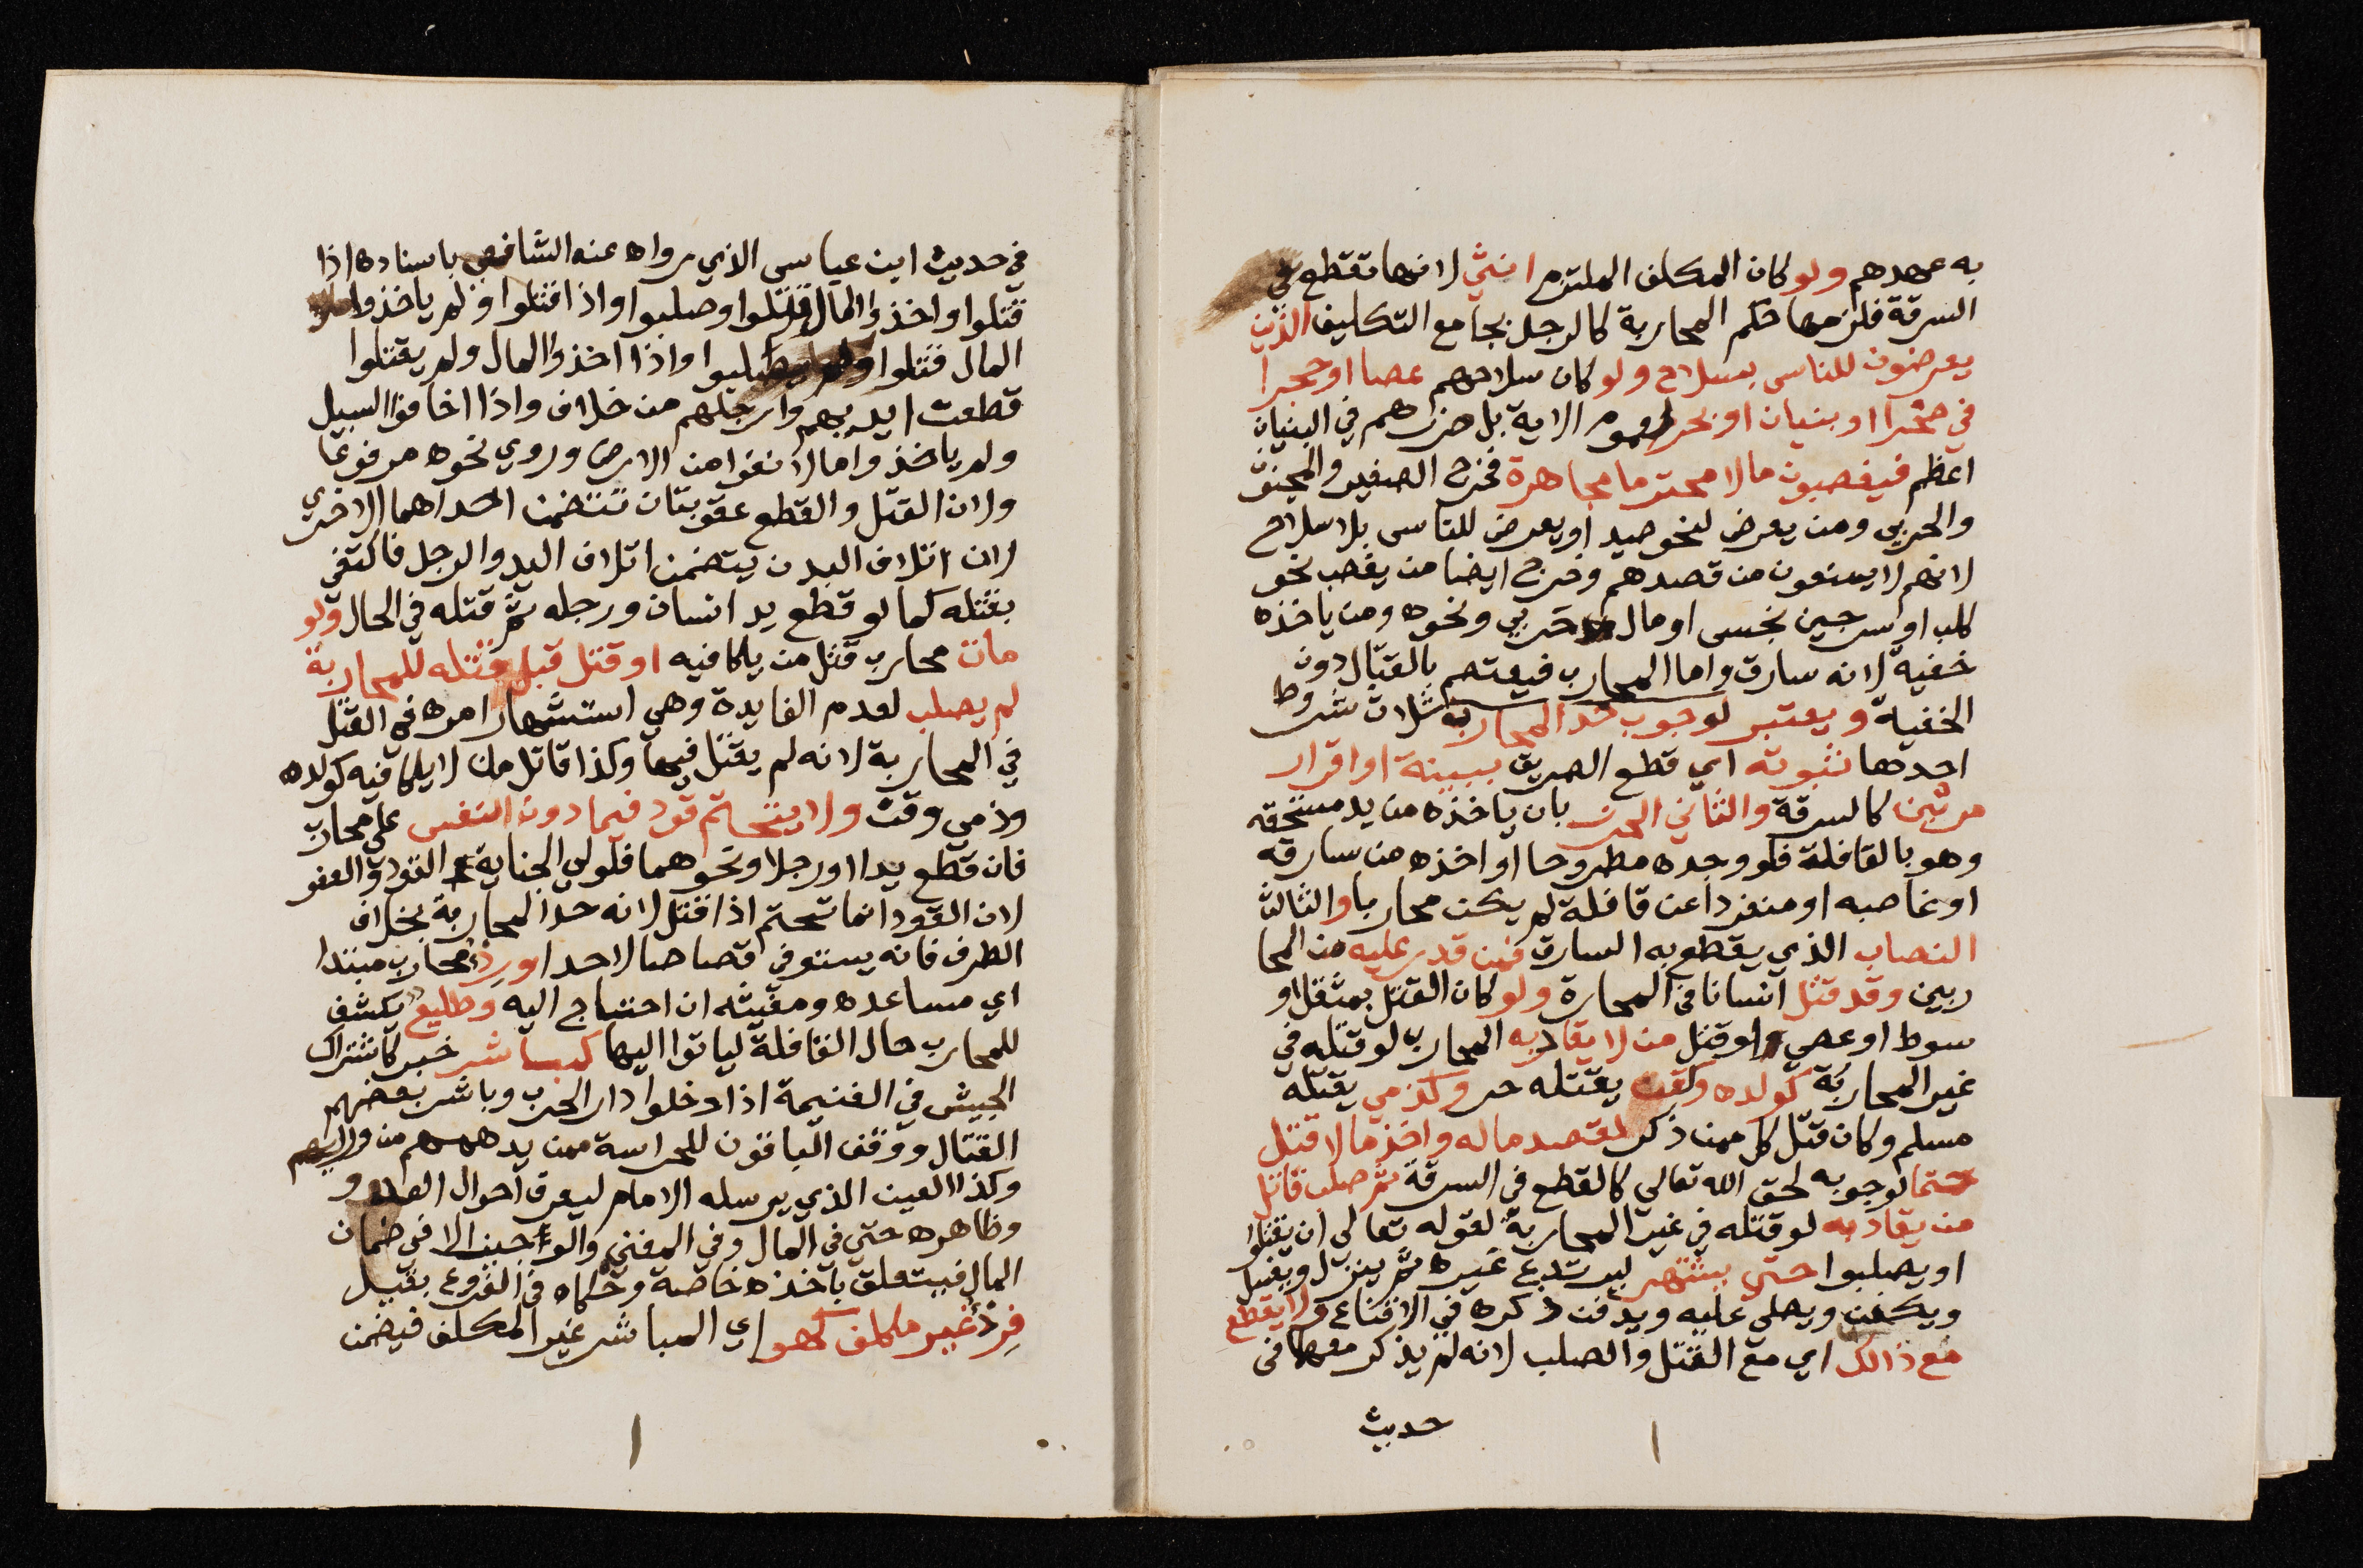 به عهدهم ولو كان المكلف الملتزم انثي لانها تقطع في
السرقة فلزمها حكم المحاربة كالرجل بجامع التكليف الذين
يعرضون للناس بسلاح ولو كان سلاحهم عصا او حجرا
في صحرا او بنيان او بحر لعموم الاية بل ضررهم في البنيان
اعظم فيغصبون مالا محترما مجاهرة فخرج الصغير والمجنون
والحربي ومن يعرض لنحو صيد او يعرض للناس بلا سلاح
لانهم لا يمنعون من قصدهم وخرج ايضا من يغصب نحو
كلب او سرجين نجس او مال حربي ونحوه ومن ياخذه
خفية لانه سارق واما المحارب فيعتصم بالقتال دون
الخفية ويعتبر لوجوب حد المحاربه ثلاث شروط
احدها ثبوته اي قطع الطريق ببينة او اقرار
مرتين كالسرقة والثاني الحرز بان ياخذه من يد مستحقه
وهو بالقافلة فلو وجده مطروحا او اخذه من سارقه
او غاصبه او منفردا عن قافلة لم يكن محاربا والثالث
النصاب الذي يقطع به السارق فمن قدر عليه من المحا
ربين وقد قتل انسانا في المحاربة ولو كان القتل بمثقل او
سوط او عصي ولو قتل من لا يقاد به المحارب لو قتله في
غير المحاربة كولده وكقن يقتله حر وكذمي يقتله
مسلم وكان قتل كل ممن ذكر لقصد ماله واخذ مالا قتل
حتما لوجوبه لحق الله تعالي كالقطع في السرقة ثم صلب قاتل
من يقاد به لو قتله في غير المحاربة لقوله تعالي ان يقتلوا
او يصلبوا حتي يشتهر ليرتدع غيره ثم ينزل ويغسل
ويكفن ويصلي عليه ويدفن ذكره في الاقناع ولا يقطع
مع ذالك اي مع القتل والصلب لانه لم يذكر معهما في
حديث
في حديث ابن عباس الذي رواه عنه الشافعي باسناده اذا
قتلوا واخذوا المال قتلوا وصلبوا واذا قتلوا ولم ياخذوا
المال قتلوا ولم يصلبوا واذا اخذوا المال ولم يقتلوا
قطعت ايديهم وارجلهم من خلاف واذا اخافوا السبيل
ولم ياخذوا مالا نفوا من الارض وروي نحوه مرفوعا
ولان القتل والقطع عقوبتان تتضمن احداهما الاخري
لان اتلاف البدن يتضمن اتلاف اليد والرجل فاكتفي
بقتله كما لو قطع يد انسان ورجله ثم قتله في الحال ولو
مات محارب قتل من يكافيه او قتل قبل قتله للمحاربة
لم يصلب لعدم الفايدة وهي استشهار امره في القتل
في المحاربة لانه لم يقتل فيها وكذا قاتل من لا يكافيه كولده
وذمي وقن ولا يتحتم قود فيما دون النفس علي محارب
فان قطع يدا او رجلا ونحوهما فلولي الجناية القود والعفو
لان القود انما تحتم اذا قتل لانه حد المحاربة بخلاف
الطرف فانه يستوفي قصاصا لا حدا وردء محارب مبتدا
اي مساعده ومغيثه ان احتاج اليه وطليع يكشف
للمحارب حال القافلة لياتوا اليها كمباشر خبر كاشتراك
الجيش في الغنيمة اذا دخلوا دار الحرب وباشر بعضهم
القتال ووقف الباقون للحراسة ممن يدهمهم من ورايهم
وكذا العين الذي يرسله الامام ليعرف احوال العدو و
وظاهره حتي في المال وفي المغني والوجيز الا في ضمان
المال فيتعلق باخذه خاصة وحكاه في الفروع بقيل
فردء غير مكلف كهو اي المباشر غير المكلف فيضمن